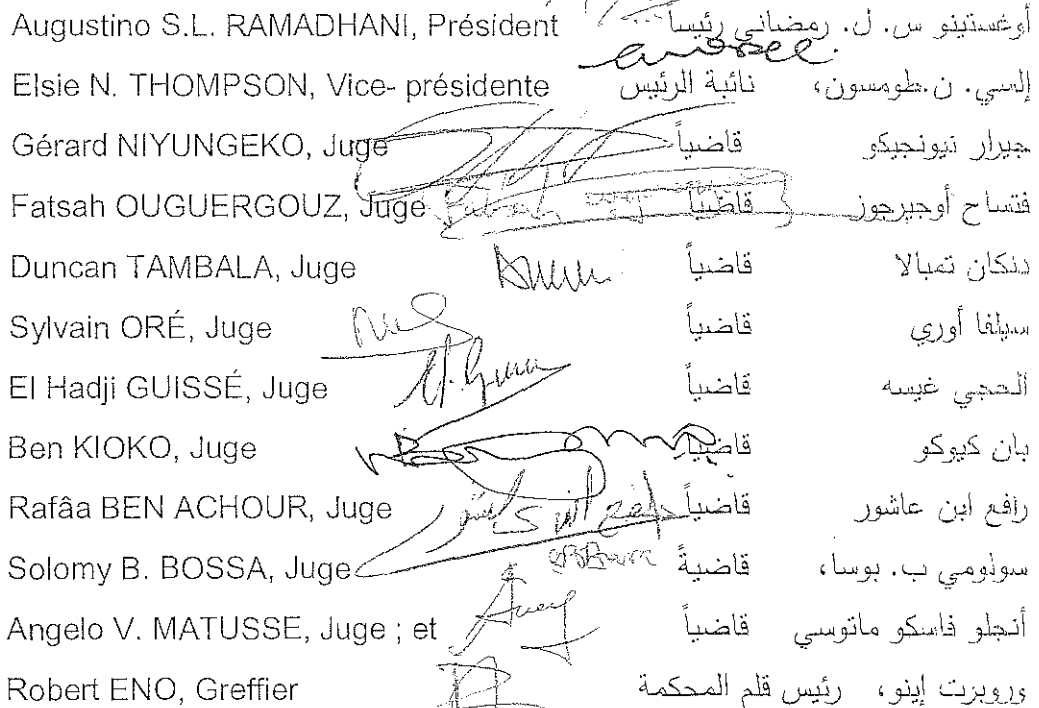 Augustino S.L. RAMADHANI, Président أوغستينو س. ل. رمضاني رئيساً
Elsie N. THOMPSON, Vice- présidente إلسي. ن.طومسون، نائبة الرئيس
Gérard NIYUNGEKO, Juge جيرار نيونجيكو قاضياً
Fatsah OUGUERGOUZ, Juge فتساح أوجيرجوز قاضياً
Duncan TAMBALA, Juge دنكان تمبالا قاضياً
Sylvain ORÉ, Juge سيلفا أوري قاضياً
El Hadji GUISSÉ, Juge ألحجي غيسه قاضياً
Ben KIOKO, Juge بان كيوكو قاضياً
Rafâa BEN ACHOUR, Juge رافع ابن عاشور قاضياً
Solomy B. BOSSA, Juge سولومي ب. بوسا، قاضيةً
Angelo V. MATUSSE, Juge ; et أنجلو فاسكو ماتوسي قاضياً
Robert ENO, Greffier وروبرت إينو، رئيس قلم المحكمة